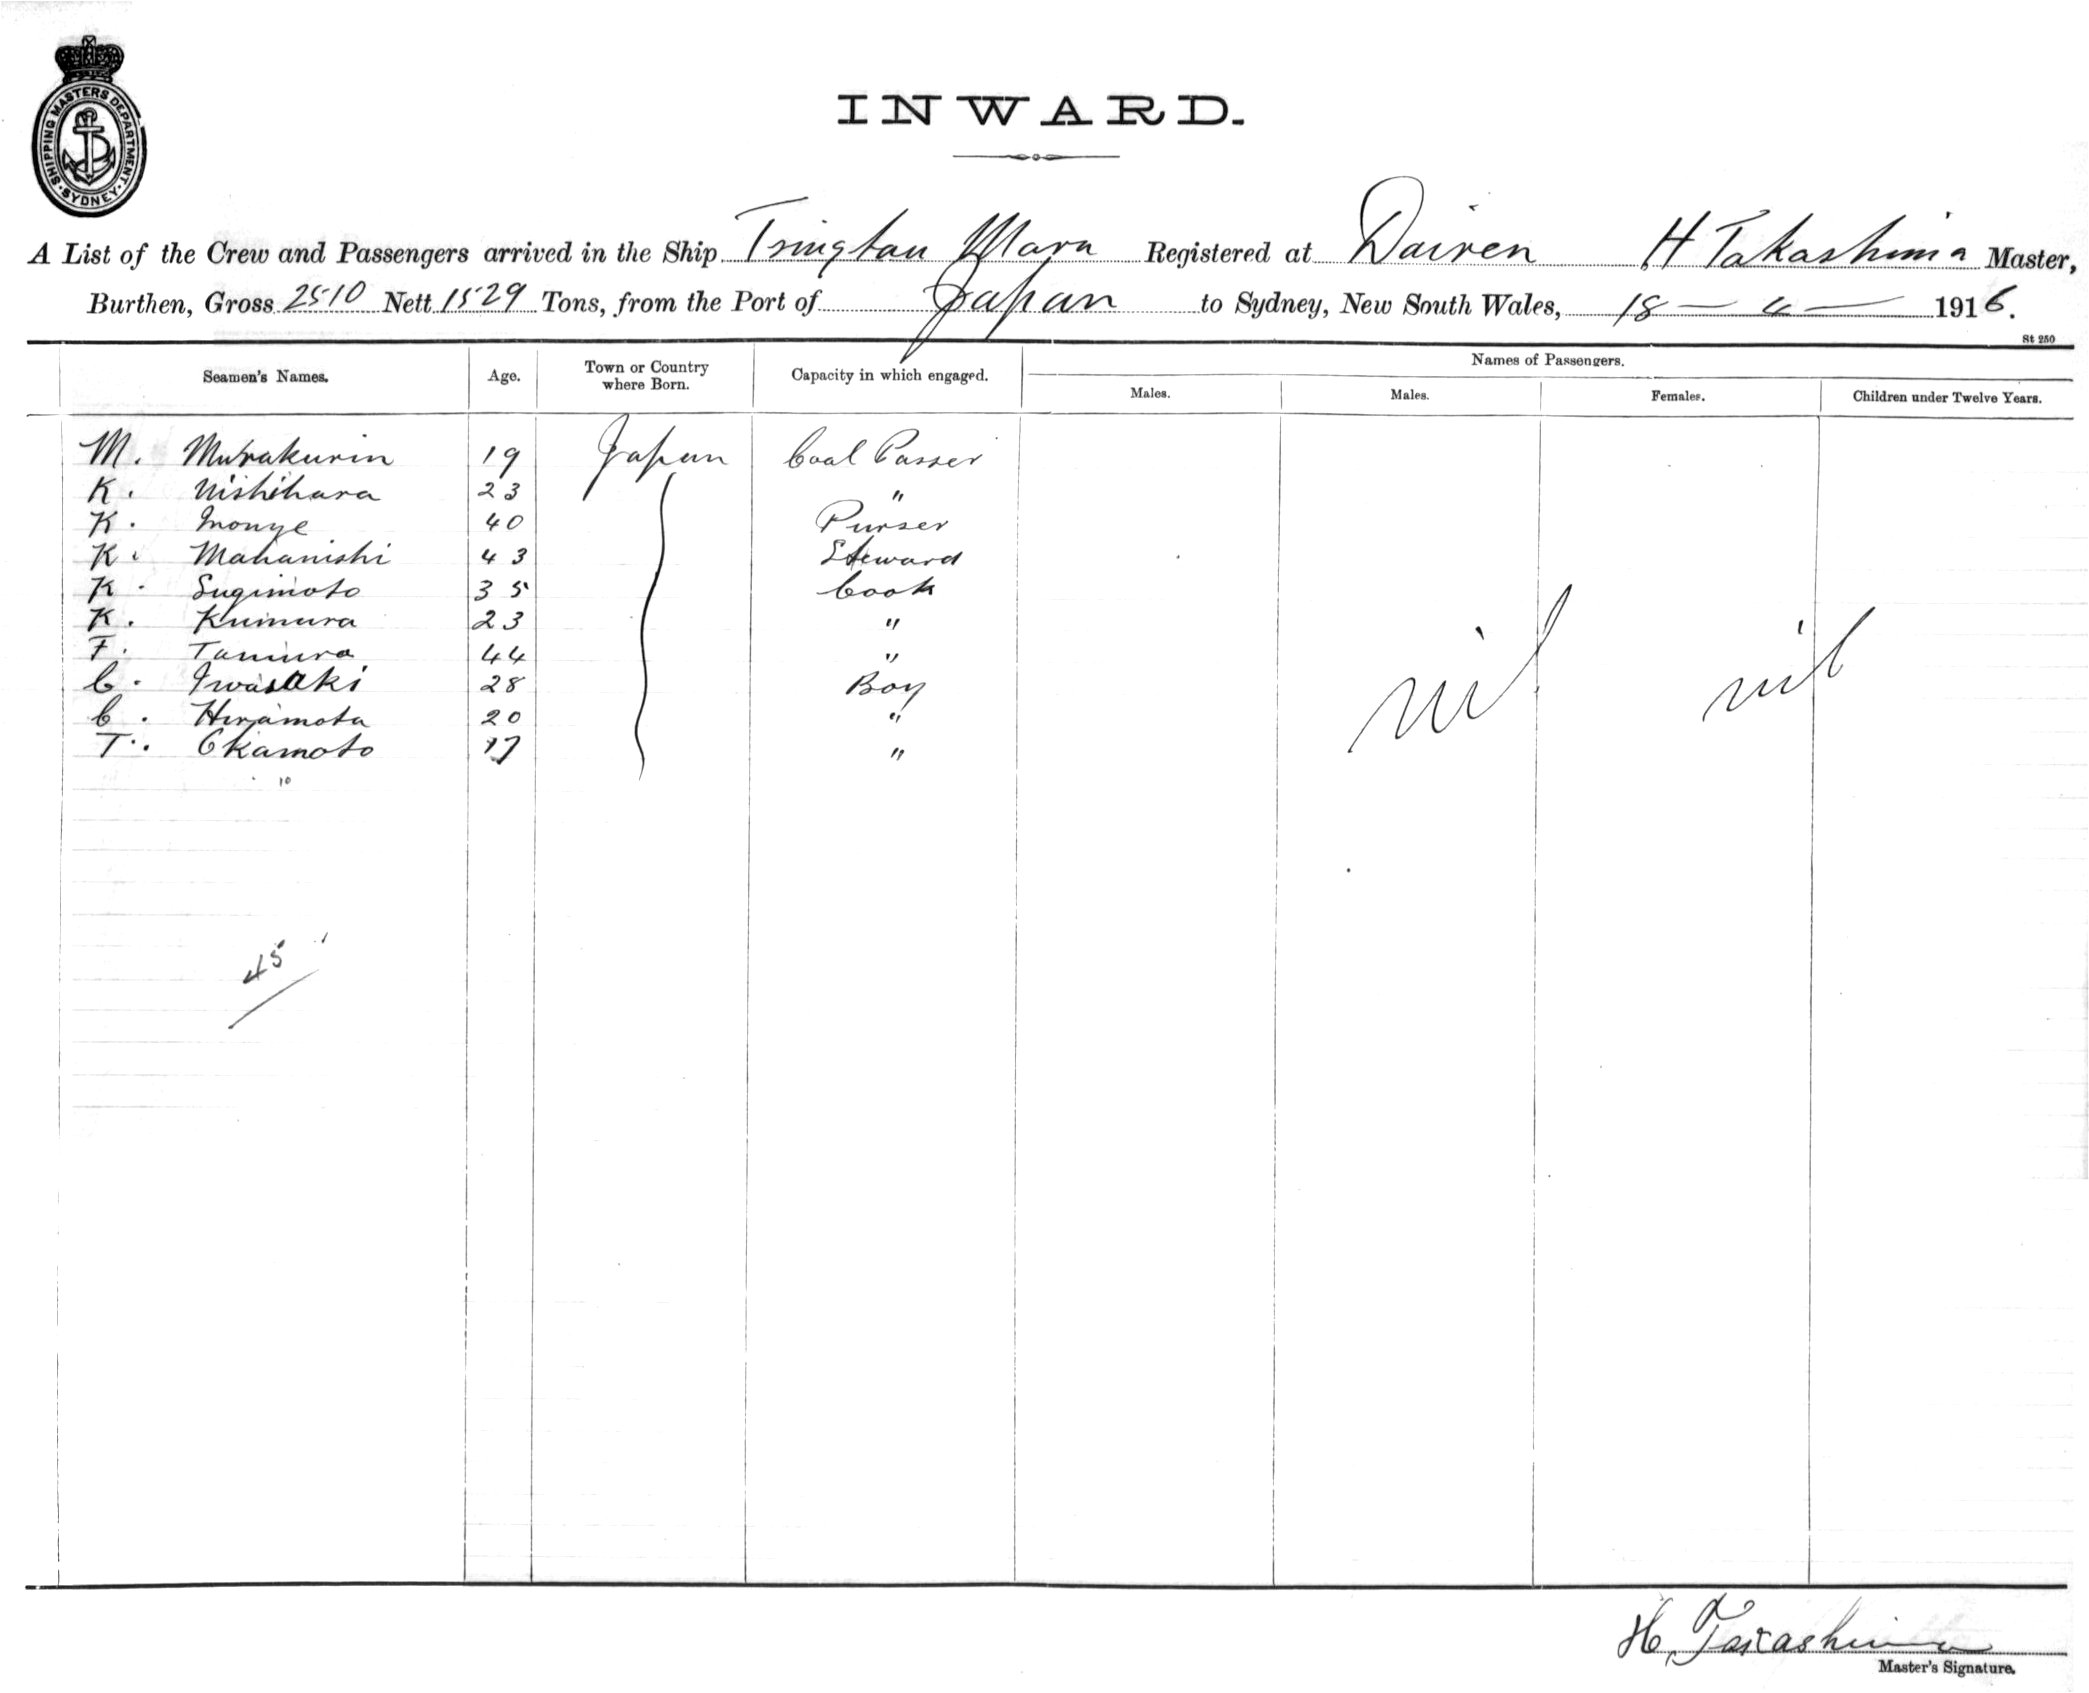 SHIPPING MASTERS DEPARTMENT · SYDNEY ·
INWARD.
A List of the Crew and Passengers arrived in the Ship Tsingtau Maru Registered at Dairen H Takashima Master,
Burthen, Gross 2510 Nett 1529 Tons, from the Port of Japan to Sydney, New South Wales, 18 — 4 — 1916.
St 250
Seamen's Names. Age. Town or Country where Born. Capacity in which engaged. Names of Passengers.
Males. Males. Females. Children under Twelve Years.
M. Murakurin 19 Japan Coal Passer
K. Nishihara 23 "
K. Inouye 40 Purser
K. 43 Steward
K. Sugimoto 35 Cook
K. Kumura 23 "
F. Tamura 44 "
C. Iwasaki 28 Boy
C. Hiramota 20 "
T. Okamoto 17 "
nil nil
10
45
H. Takashima
Master's Signature.